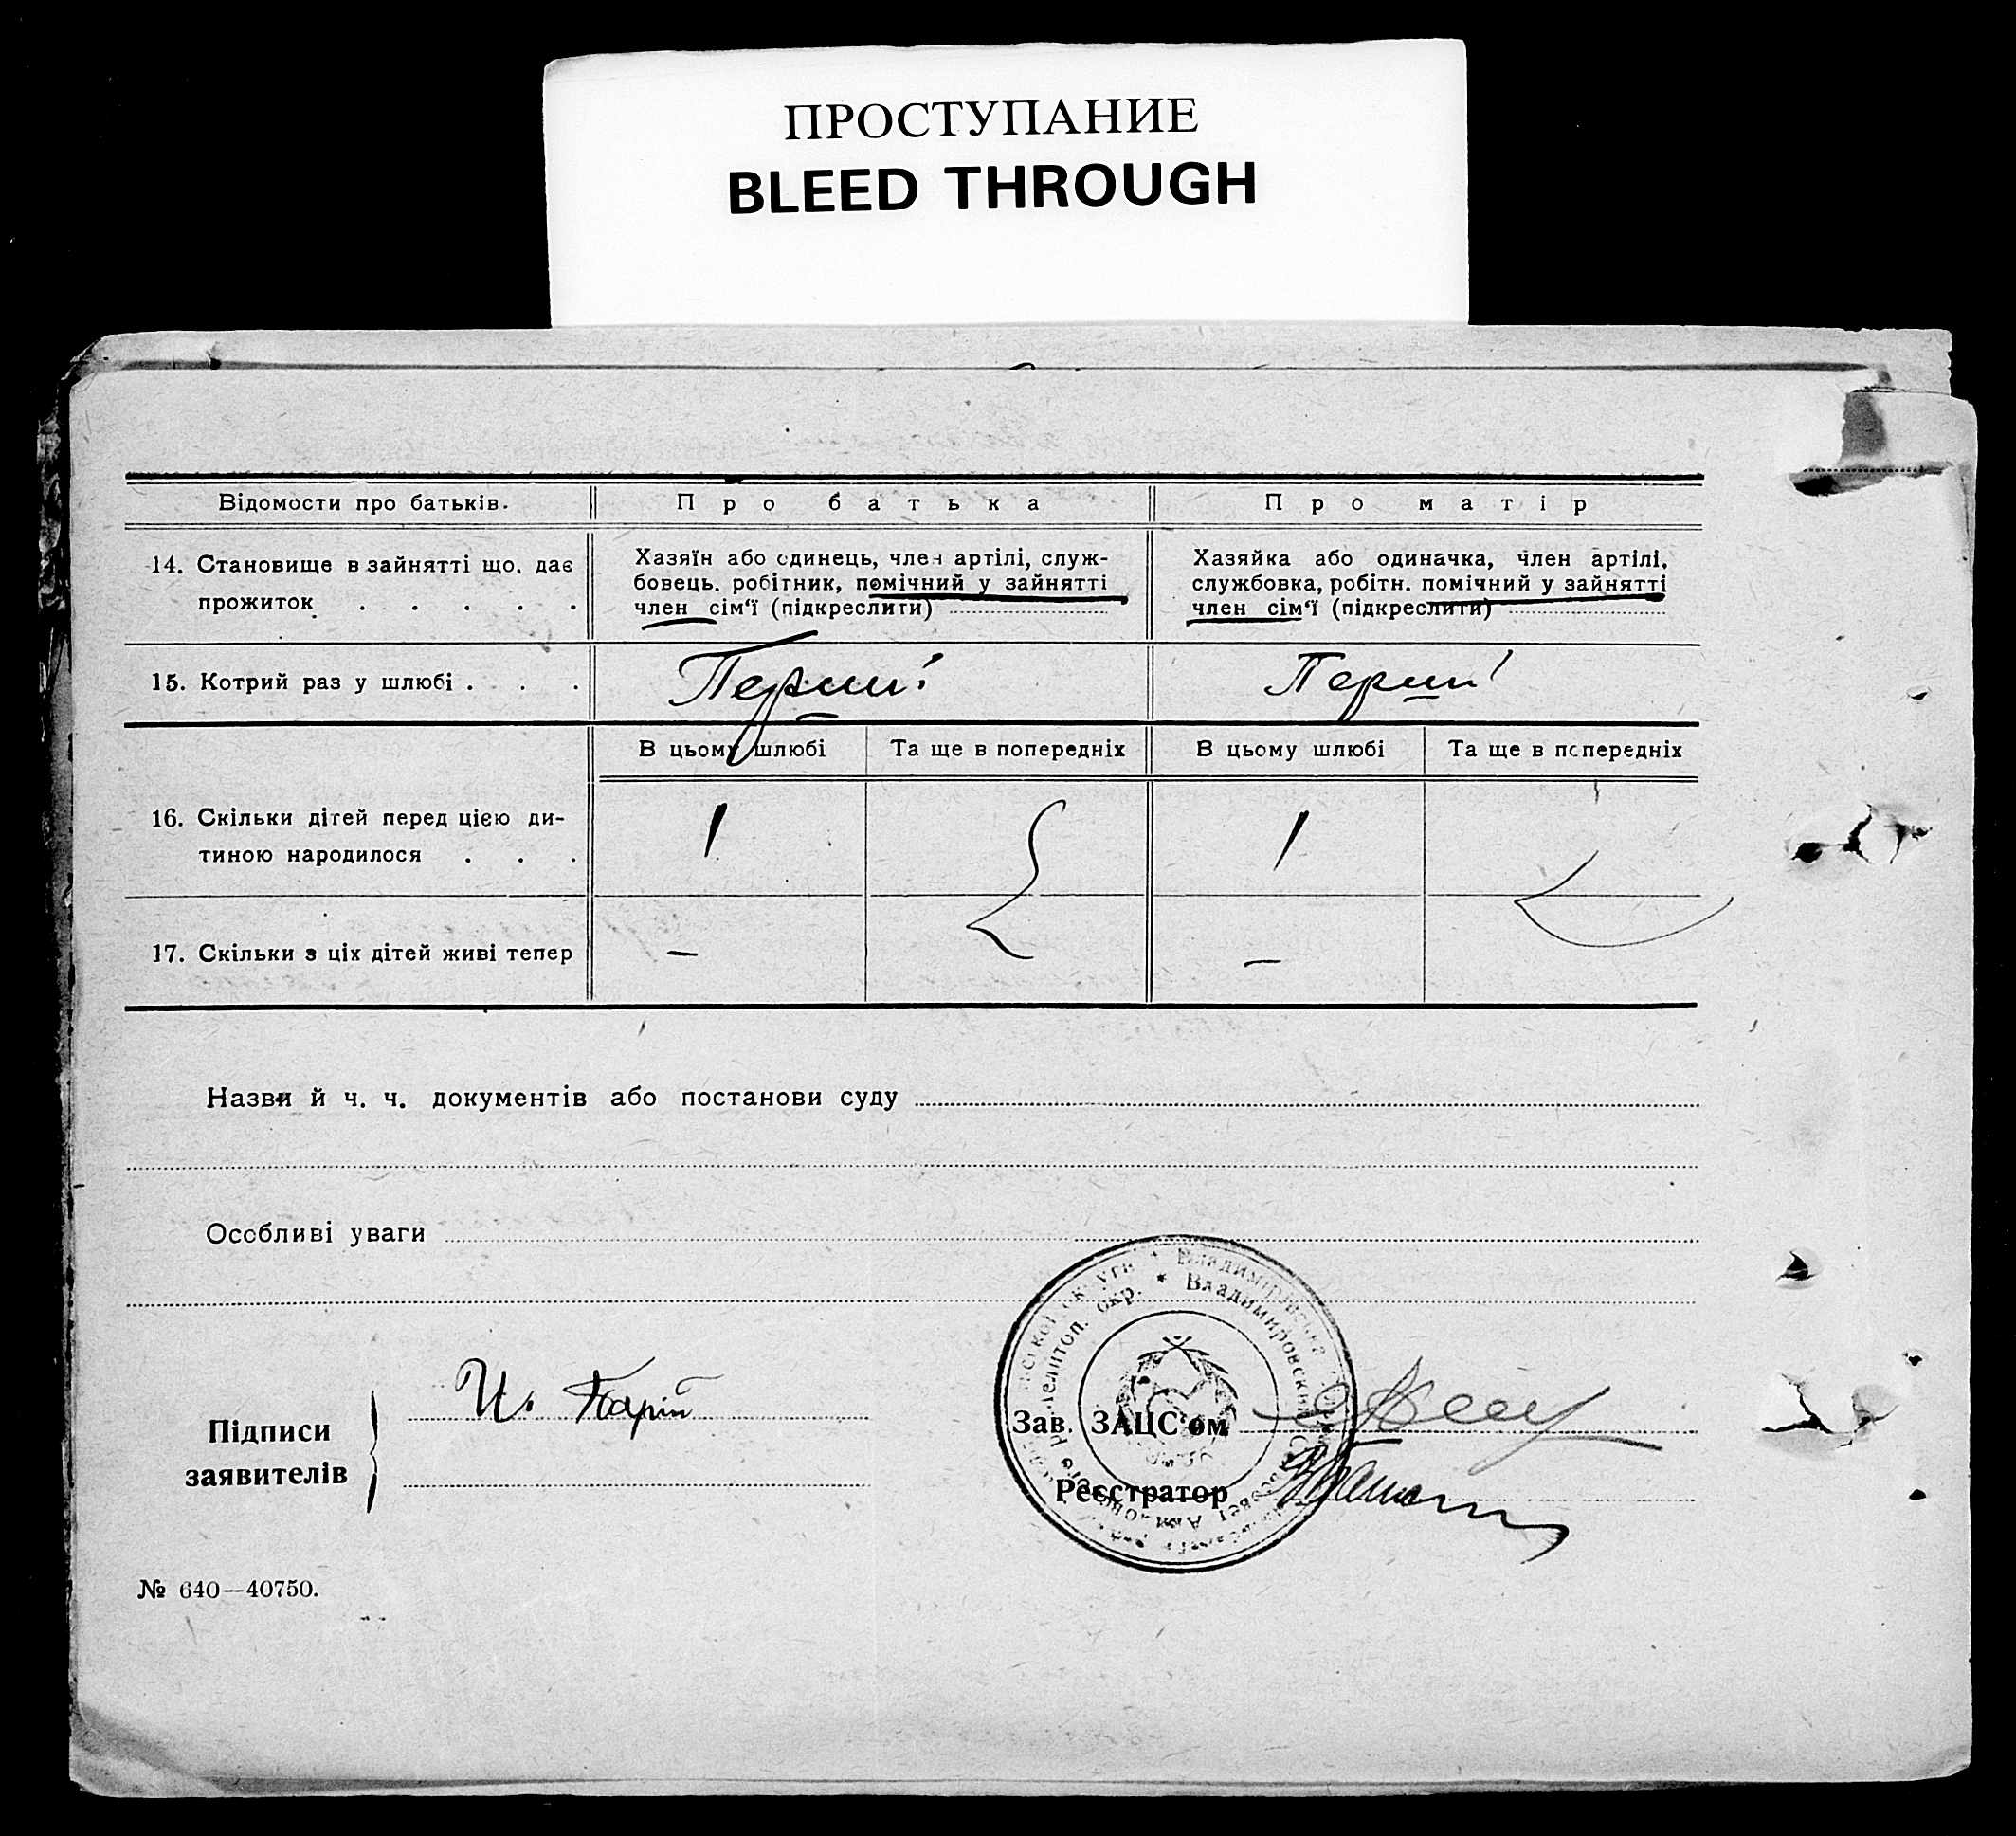 ПРОСТУПАНИЕ
BLEED THROUGH
Відомости про батьків. Про батька Про матір
14. Становище в зайнятті що, дає прожиток . . . . .
Хазяїн або одинець, член артілі, служ-
бовець, робітник, помічний у зайнятті
член сім‘ї (підкреслити)
Хазяйка або одиначка, член артілі,
службовка, робітн. помічний у зайнятті
член сім‘ї (підкреслити)
15. Котрий раз у шлюбі . . . Перший Перший
В цьому шлюбі Та ще в попередніх В цьому шлюбі Та ще в попередніх
16. Скільки дітей перед цією ди-
тиною народилося . . . 1 1
17. Скільки з ціх дітей живі тепер — —
Назви й ч. ч. документів або постанови суду
Особливі уваги
Владимировский
Мелитоп. окр.
И.
Підписи
заявителів
Зав. ЗАЦС‘ом
Реєстратор
№ 640—40750.